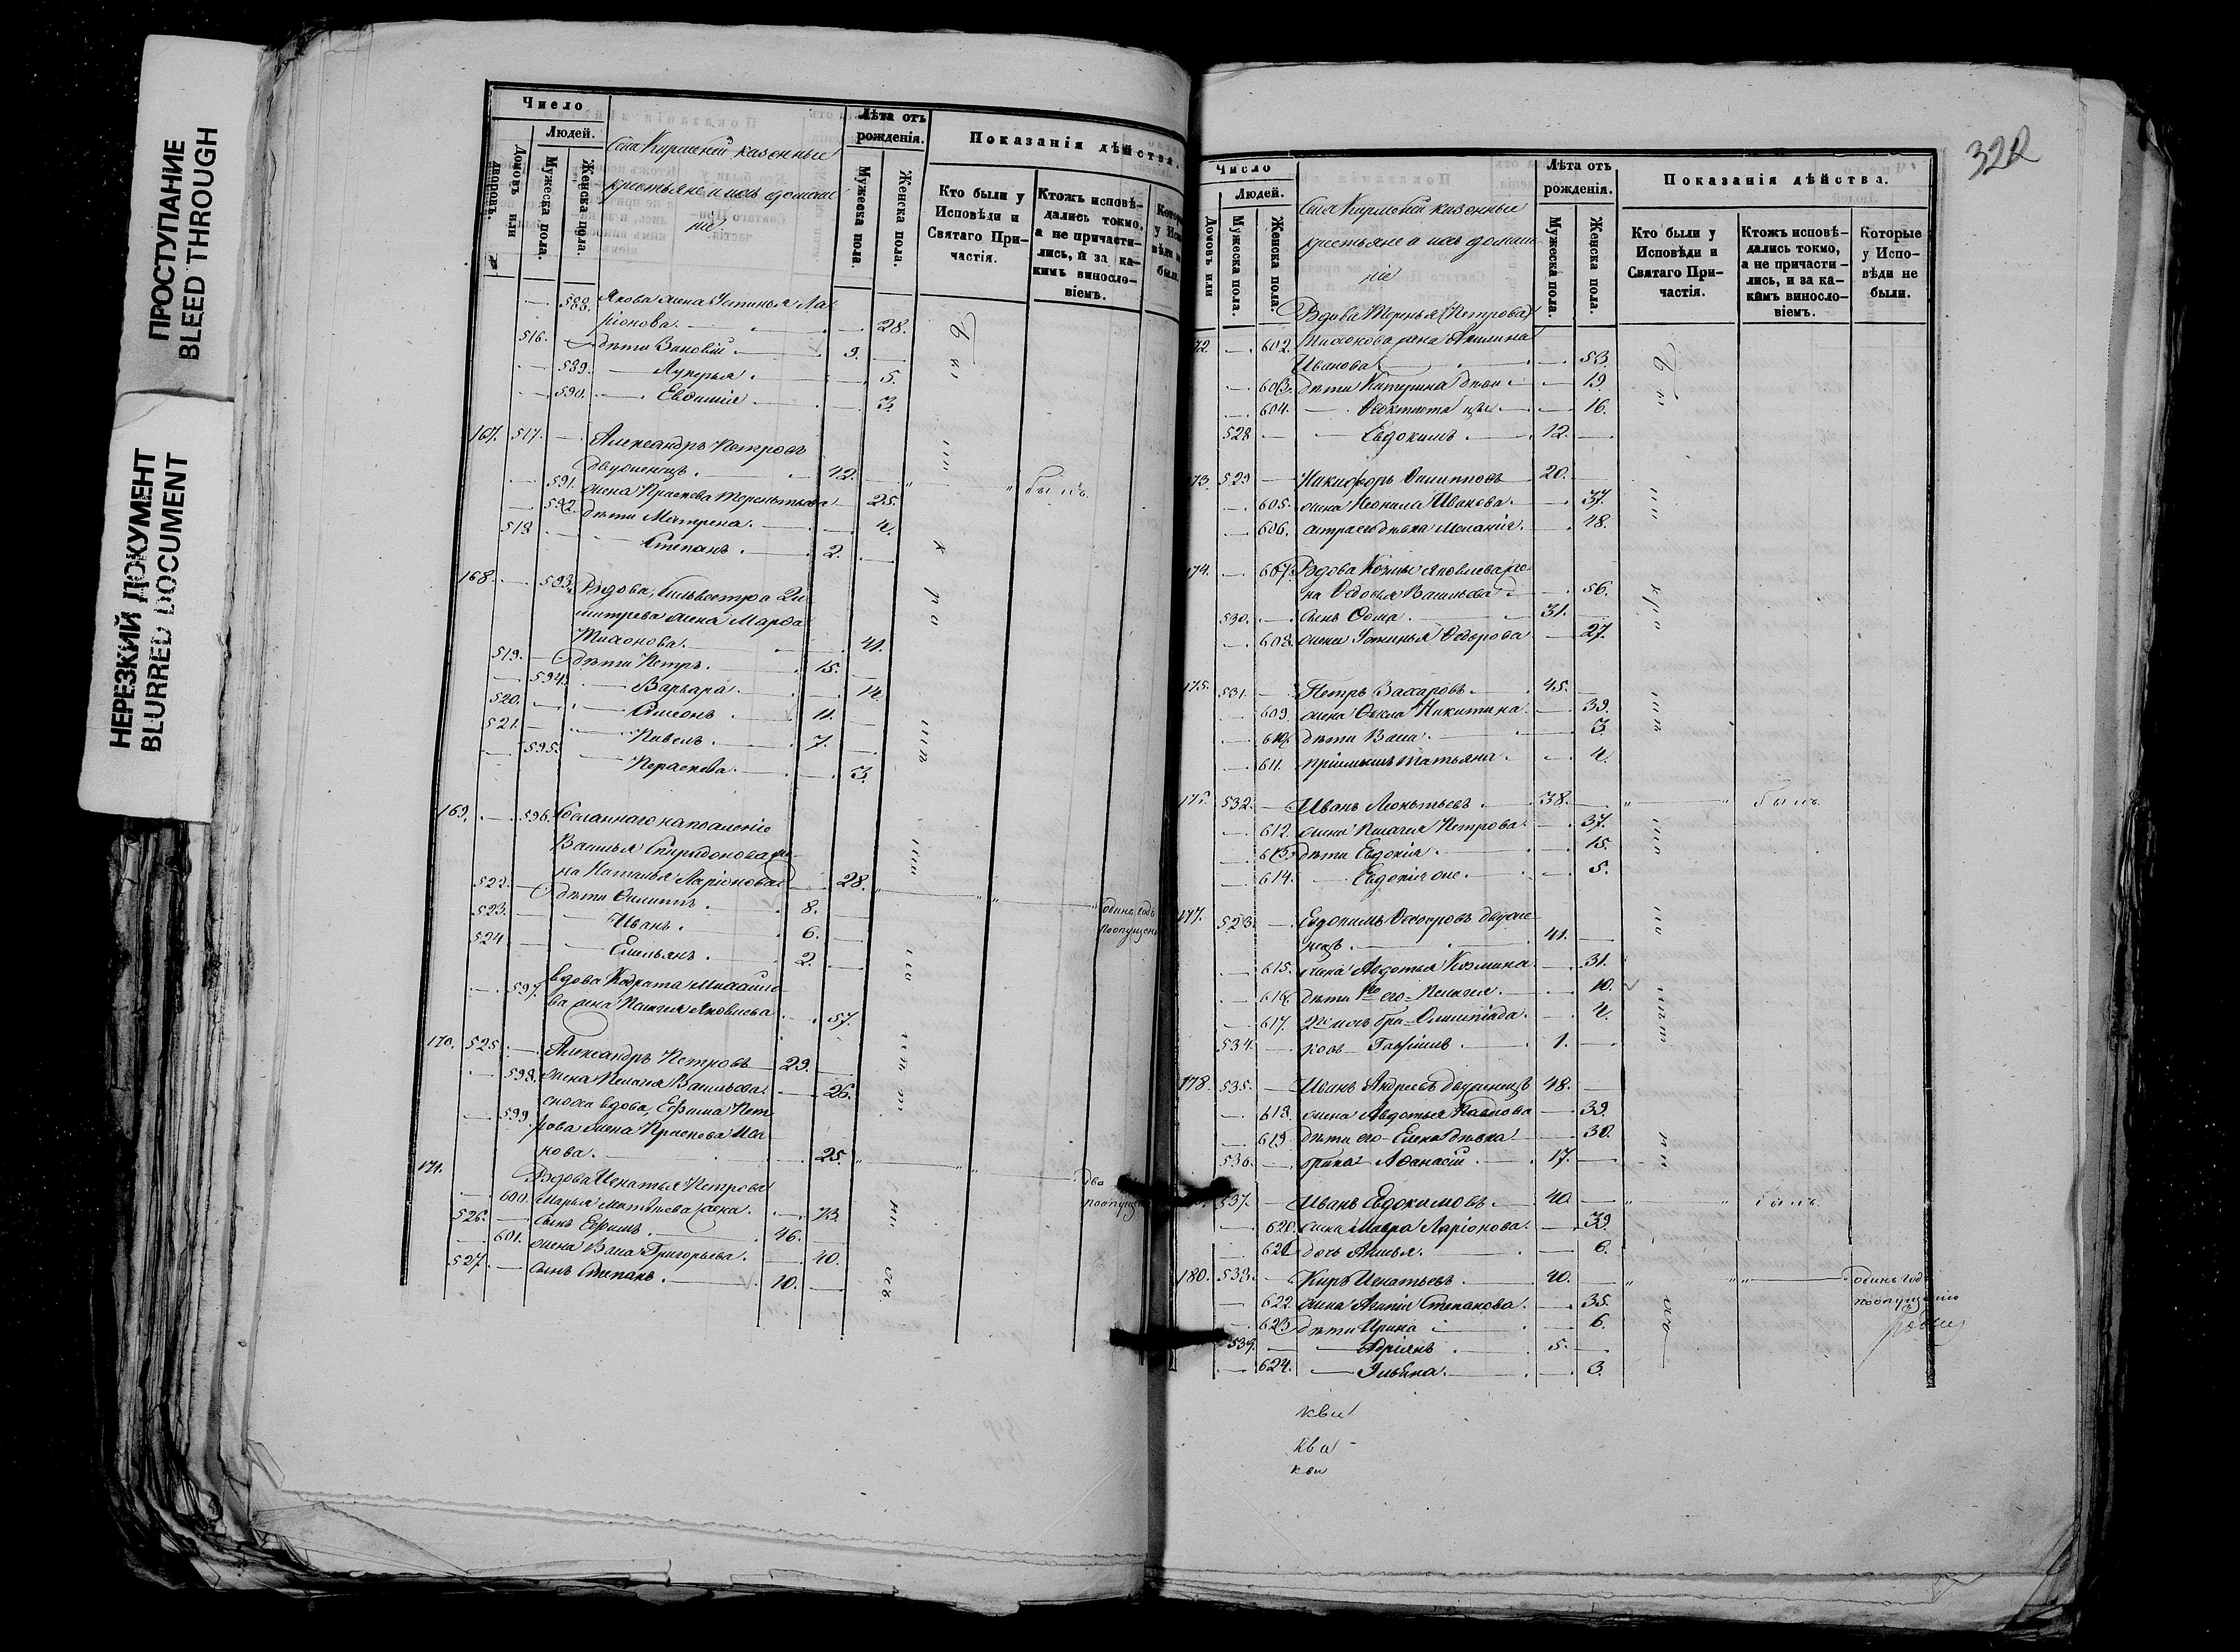 ПРОСТУПАНИЕ
BLEED THROUGH
НЕРЕЗКИЙ ДОКУМЕНТ
BLURRED DOCUMENT
Число
Людей.
Домовъ или дворовъ.
Мужеска пола.
Женска пола.
казенные
крестьяне и ихъ домаш
ніе.
Лѣта отъ рожденія.
Мужеска пола.
Женска пола.
Показанія дѣйства.
Кто были у Исповѣди и Святаго При-частія.
Ктожъ исповѣ-дались токмо, а не причасти-лись, и за ка-кимъ винosло-віемъ.
588. Якова жена Устинья Ла
ріонова. 28.
516. дѣти Зиновій. 9.
589. Лукерья. 5.
590. Евдокія 3.
167. 517. Александръ Петровъ
двуженецъ. 42. былъ
591. жена Праскева Терентьева 25.
592. дѣти Матрена. 4.
518 Степанъ. 2.
168. 593. Вдова, Сильвестра Ди
митрева жена Марфа
Тихонова. 41.
519. дѣти Петръ. 15.
594. Варвара. 14.
520. Симеонъ. 11.
521. Павелъ. 7.
595. Параскева. 3.
169. 596. Сосланнаго на поселеніе
Василья Спиридонова же
на Наталья Ларіонова 28.
522. дѣти Филиппъ. 8. одинъ годъ
523. Иванъ. 6. поопущен
524 Емельянъ. 2.
597. вдова Кодрата Михайло
ва жена Пелагея Яковлева 57.
170. 525. Александръ Петровъ 29.
598. жена Пелагея Васильева. 26.
599. сноха вдова, Ефима Пет
рова жена Праскева Ива
нова. 25.
171. Вдова Игнатья Петрова два
600. Марья Матвѣева жена. 73. поопущ
526. сынъ Ефимъ. 46.
601. жена Васса Григорьева. 40.
527. сынъ Степанъ. 10.
322
Число
Людей.
Домовъ или
Мужеска пола.
Женска пола.
казенные
крестьяне и ихъ домаш
ніе
Лѣта отъ рожденія.
Мужеска пола.
Женска пола.
Показанія дѣйства.
Кто были у Исповѣди и Святаго При-частія.
Ктожъ исповѣ-дались токмо, а не причасти-лись, и за ка-кимъ винosло-віемъ.
Которые у Испо-вѣди не были.
Вдова Терентья Петрова
72. 602. Тихонова жена Акилина
Иванова. 53.
603. дѣти Катерина 19.
604. Феоктиста 16.
528 Евдокимъ. 12.
73. 529 Никифоръ Филипповъ 20.
605. жена Неонила Иванова. 37.
606. сестра его дѣвка Меланія. 48.
174. 607. Вдова Козмы Яковлева же
на Федосья Васильева 56.
530. Сынъ Фома. 31.
608. жена Устинья Федорова 27.
175. 531. Петръ Захаровъ. 45.
609. жена Фекла Никитина 39.
610. дѣти Васса. 3
611. Татьяна. 4.
176. 532. Иванъ Леонтьевъ 38. былъ
612. жена Пелагея Петрова 37.
613. дѣти Евдокія. 15.
614. Евдокія же. 5.
177. 523. Евдокимъ Федоровъ двуже
нецъ. 41.
615. жена Авдотья Козмина. 31.
616. дѣти 1го его Пелагея. 10.
617. 2го ихъ бра Олимпіада. 4.
534. ковъ Гавріилъ 1.
178. 535. Иванъ Андреевъ двуженецъ 48.
618. жена Авдотья Павлова 39.
619 дѣти его Елена дѣвка 30.
536. брака Афанасій. 17.
537. Иванъ Евдокимовъ. 40. былъ
620. жена Мавра Ларіонова. 39.
621 дочь Анисья. 6.
180. 538. Киръ Игнатьевъ 40. одинъ годъ
622. жена Агапія Степанова. 35. поопущенію
623 дѣти Ирина 6.
539. Адріянъ 5.
624. Ульяна. 3.